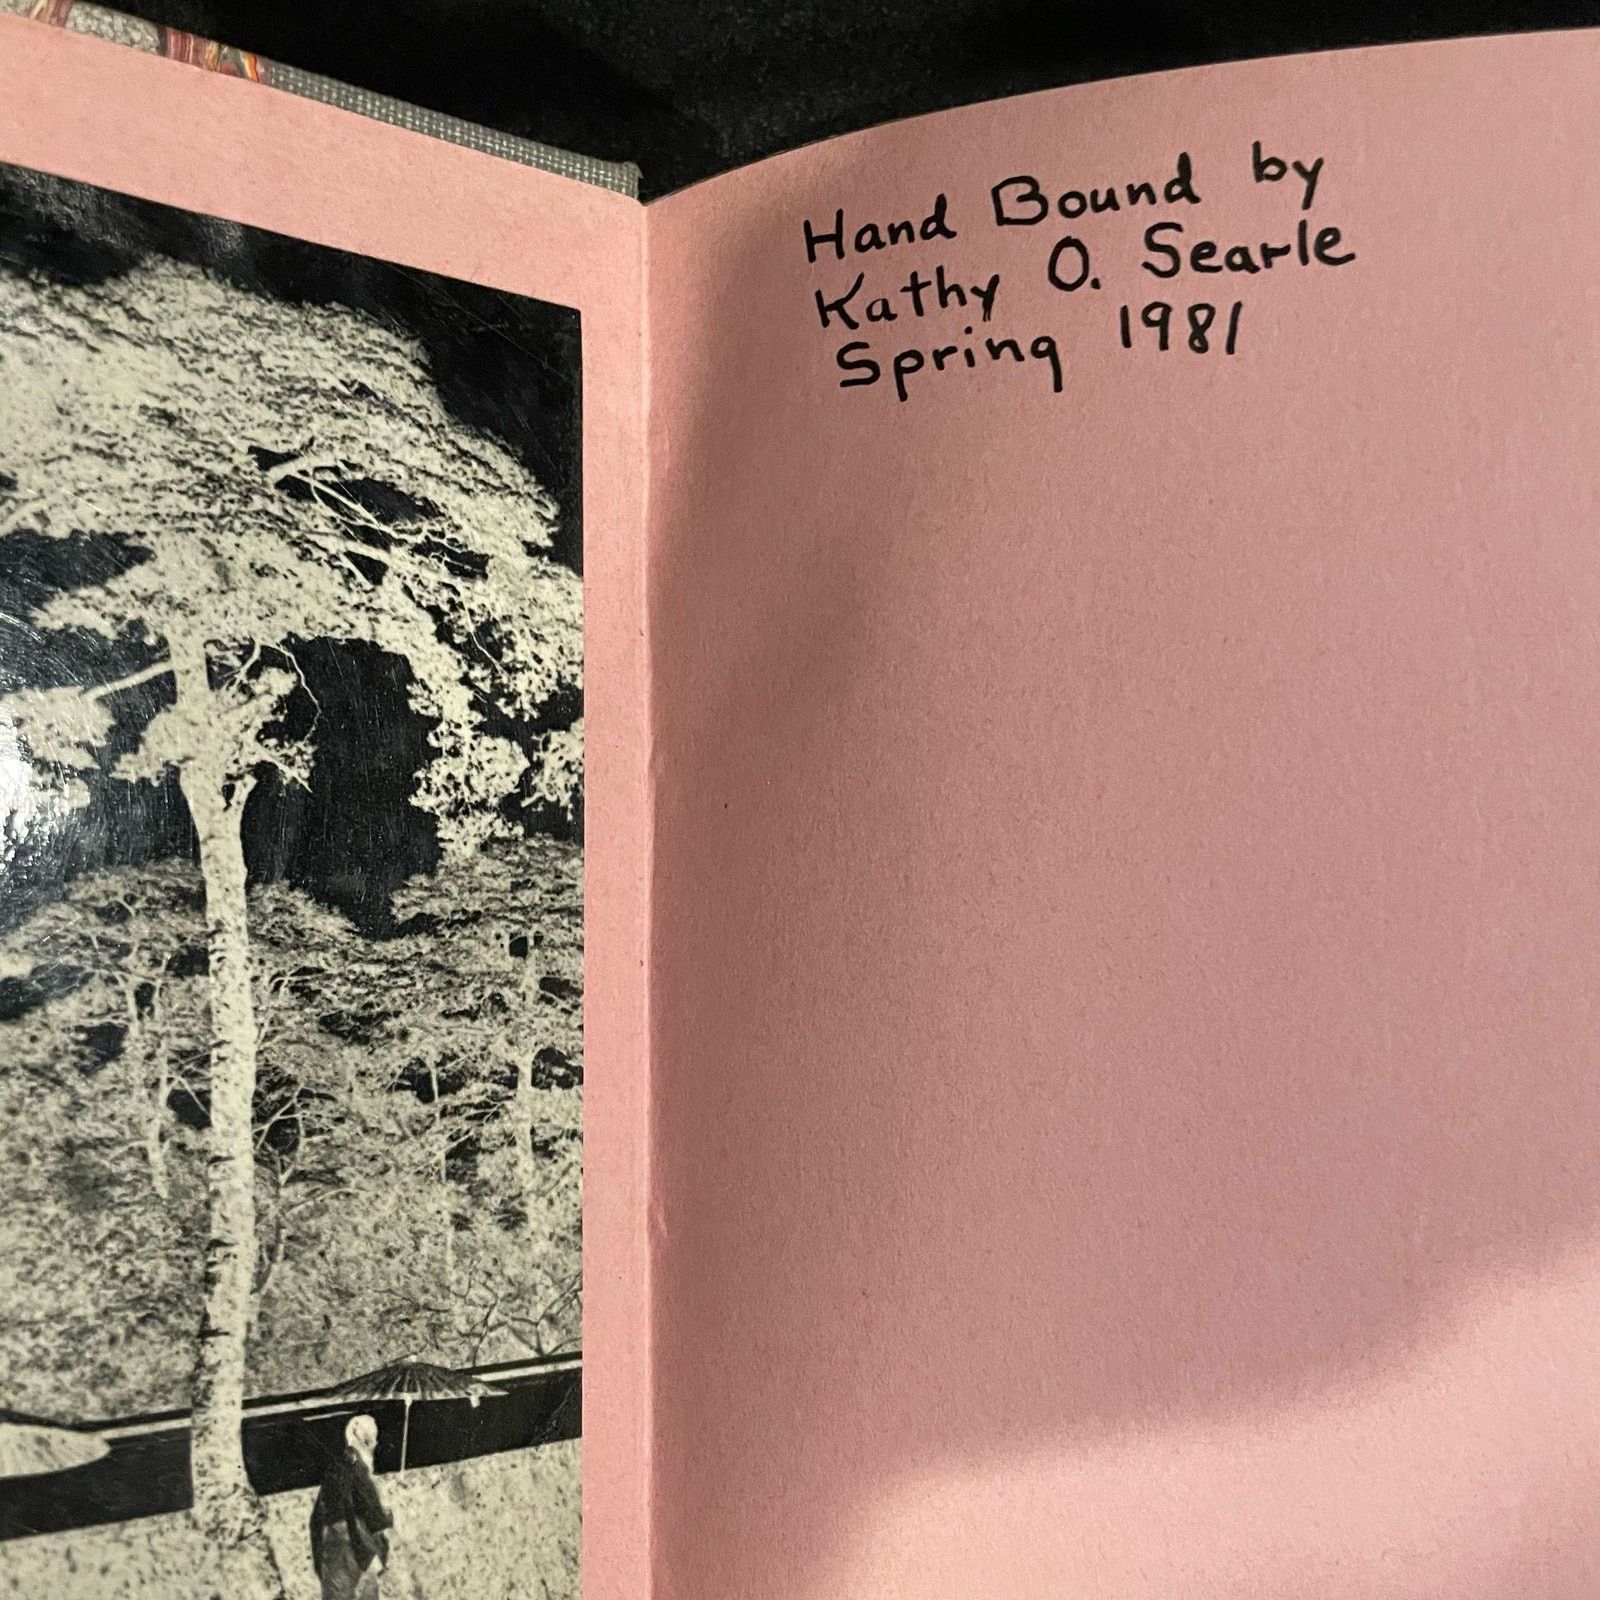 Hand Bound by
Kathy O. Searle
Spring 1981